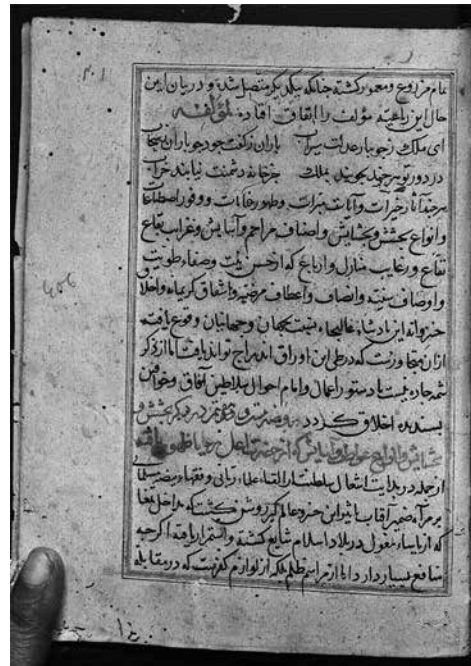 تمام مزروع و معمور کشته چنانکه بیکدیگر متصل شده و در بیان این
حال این رباعیه مؤلف را اتفاق افتاده لمؤلفه
ای ملک ز جویبار عدلت سیراب باران زکفت جود چو باران سحاب
در دور تو هر چند بجویند بملک جز خانه دشمنت نیابند خراب
هر چند آثار خیرات و آیات مبرات و ظهور عنایات و وفور اصطناعات
و انواع بخشش و بخشایش و اصناف مراحم و آسایش و غرایب بقاع
و رغایب منازل و ارباع که از حسن نیت و صفاء طویت
و اوصاف سنیه و انصاف و اعطاف مرضیه و اشفاق کریمانه و اخلاق
خسروانه این پادشاه عالیجاه نسبت بجهان و جهانیان وقوع یافته
از آن متجاوزست که در طی این اوراق اندراج تواند یافت اما از ذکر
شمه چاره نیست تا دستور اعمال و امام احوال سلاطین آفاق و خواقین
پسندیده اخلاق کردد
بخشایش و انواع عواطف و آسایش که از حضرت اعلی
از جمله در بدایت اشتعال سلطنت علماء ربانی و فقهاء
بر مرآة ضمیر آفتاب تاثیر این خسرو عالم کیر روشن کشت که مداخل تمغا
که از یاساء مغول در بلاد اسلام شایع کشته و استمرار یافته اکرچه
منافع بسیار دارد اما از مراسم ظلم بلکه از لوازم کفرست که در مقابله